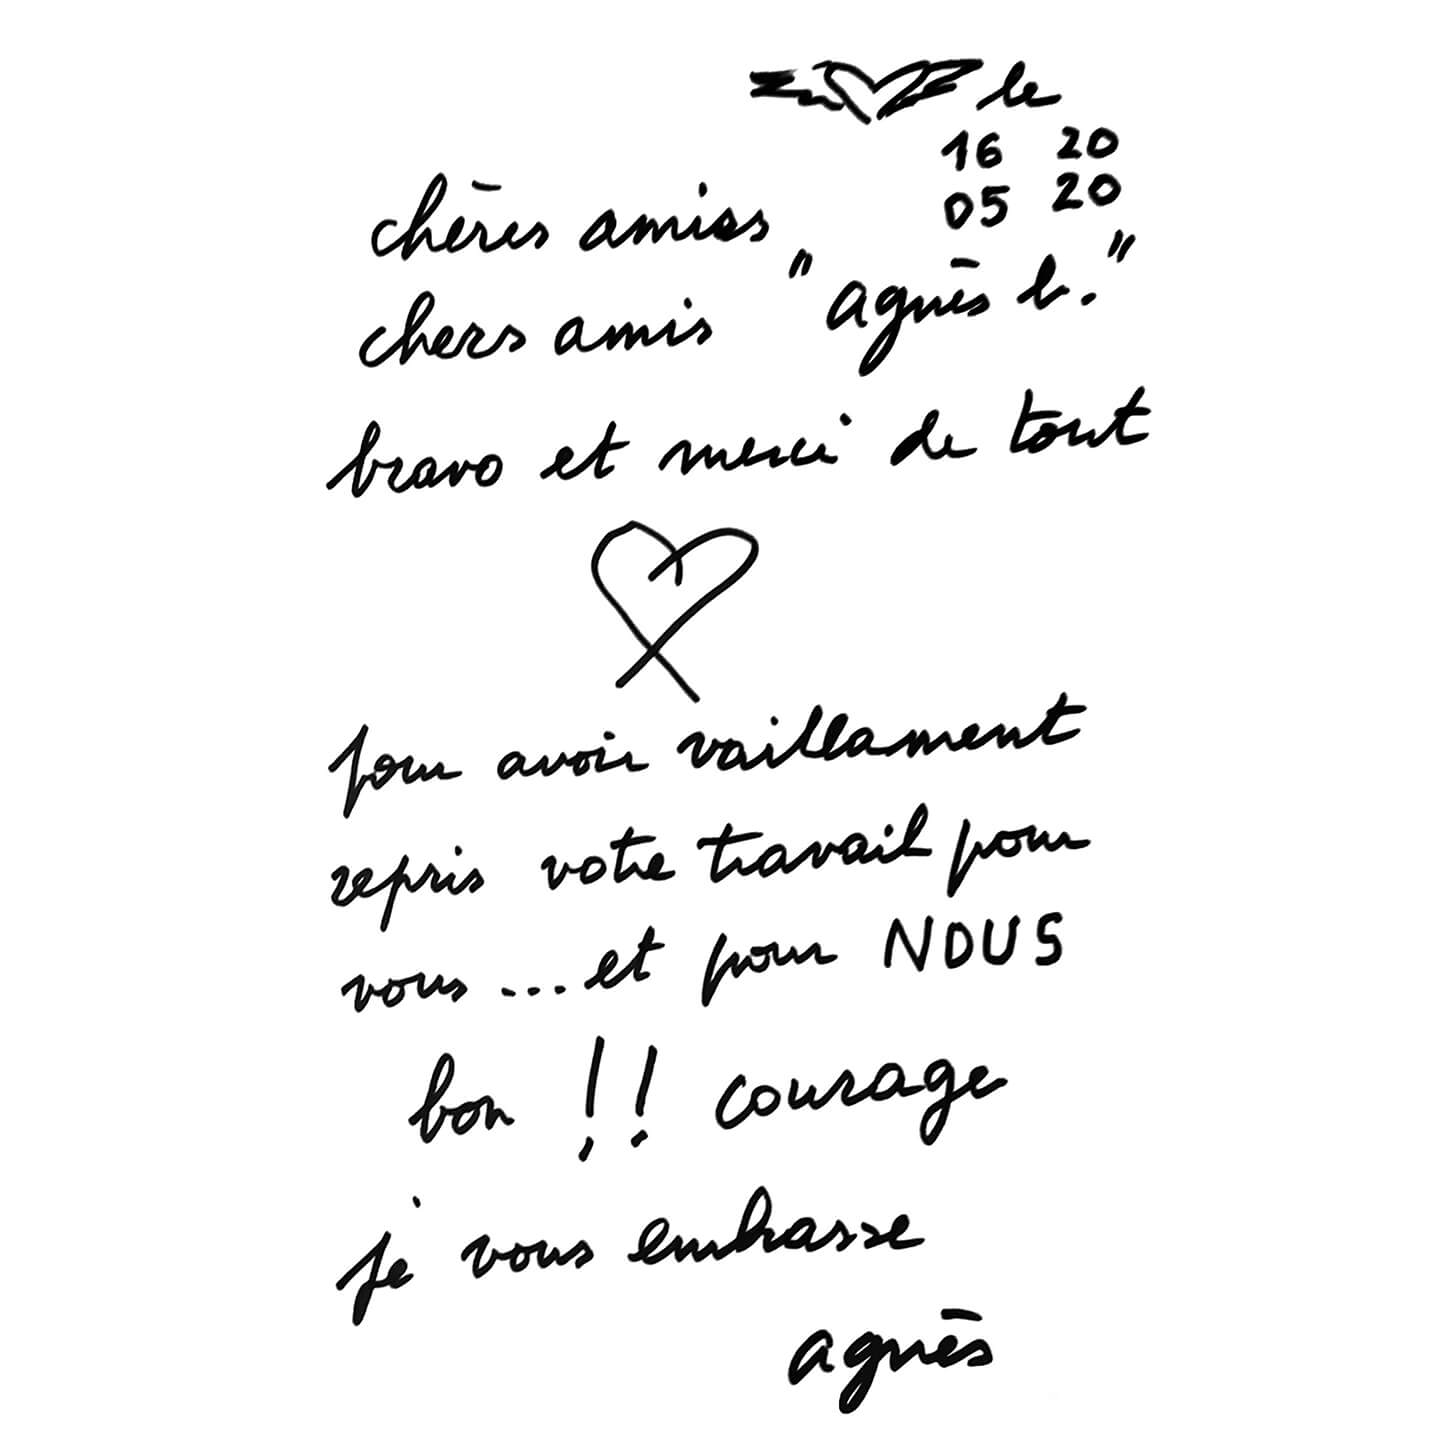 le
16 20
05 20
chères amies
chers amis "agnès b."
bravo et merci de tout
pour avoir vaillament
repris votre travail pour
vous ... et pour NOUS
bon !! courage
je vous embrasse
agnès